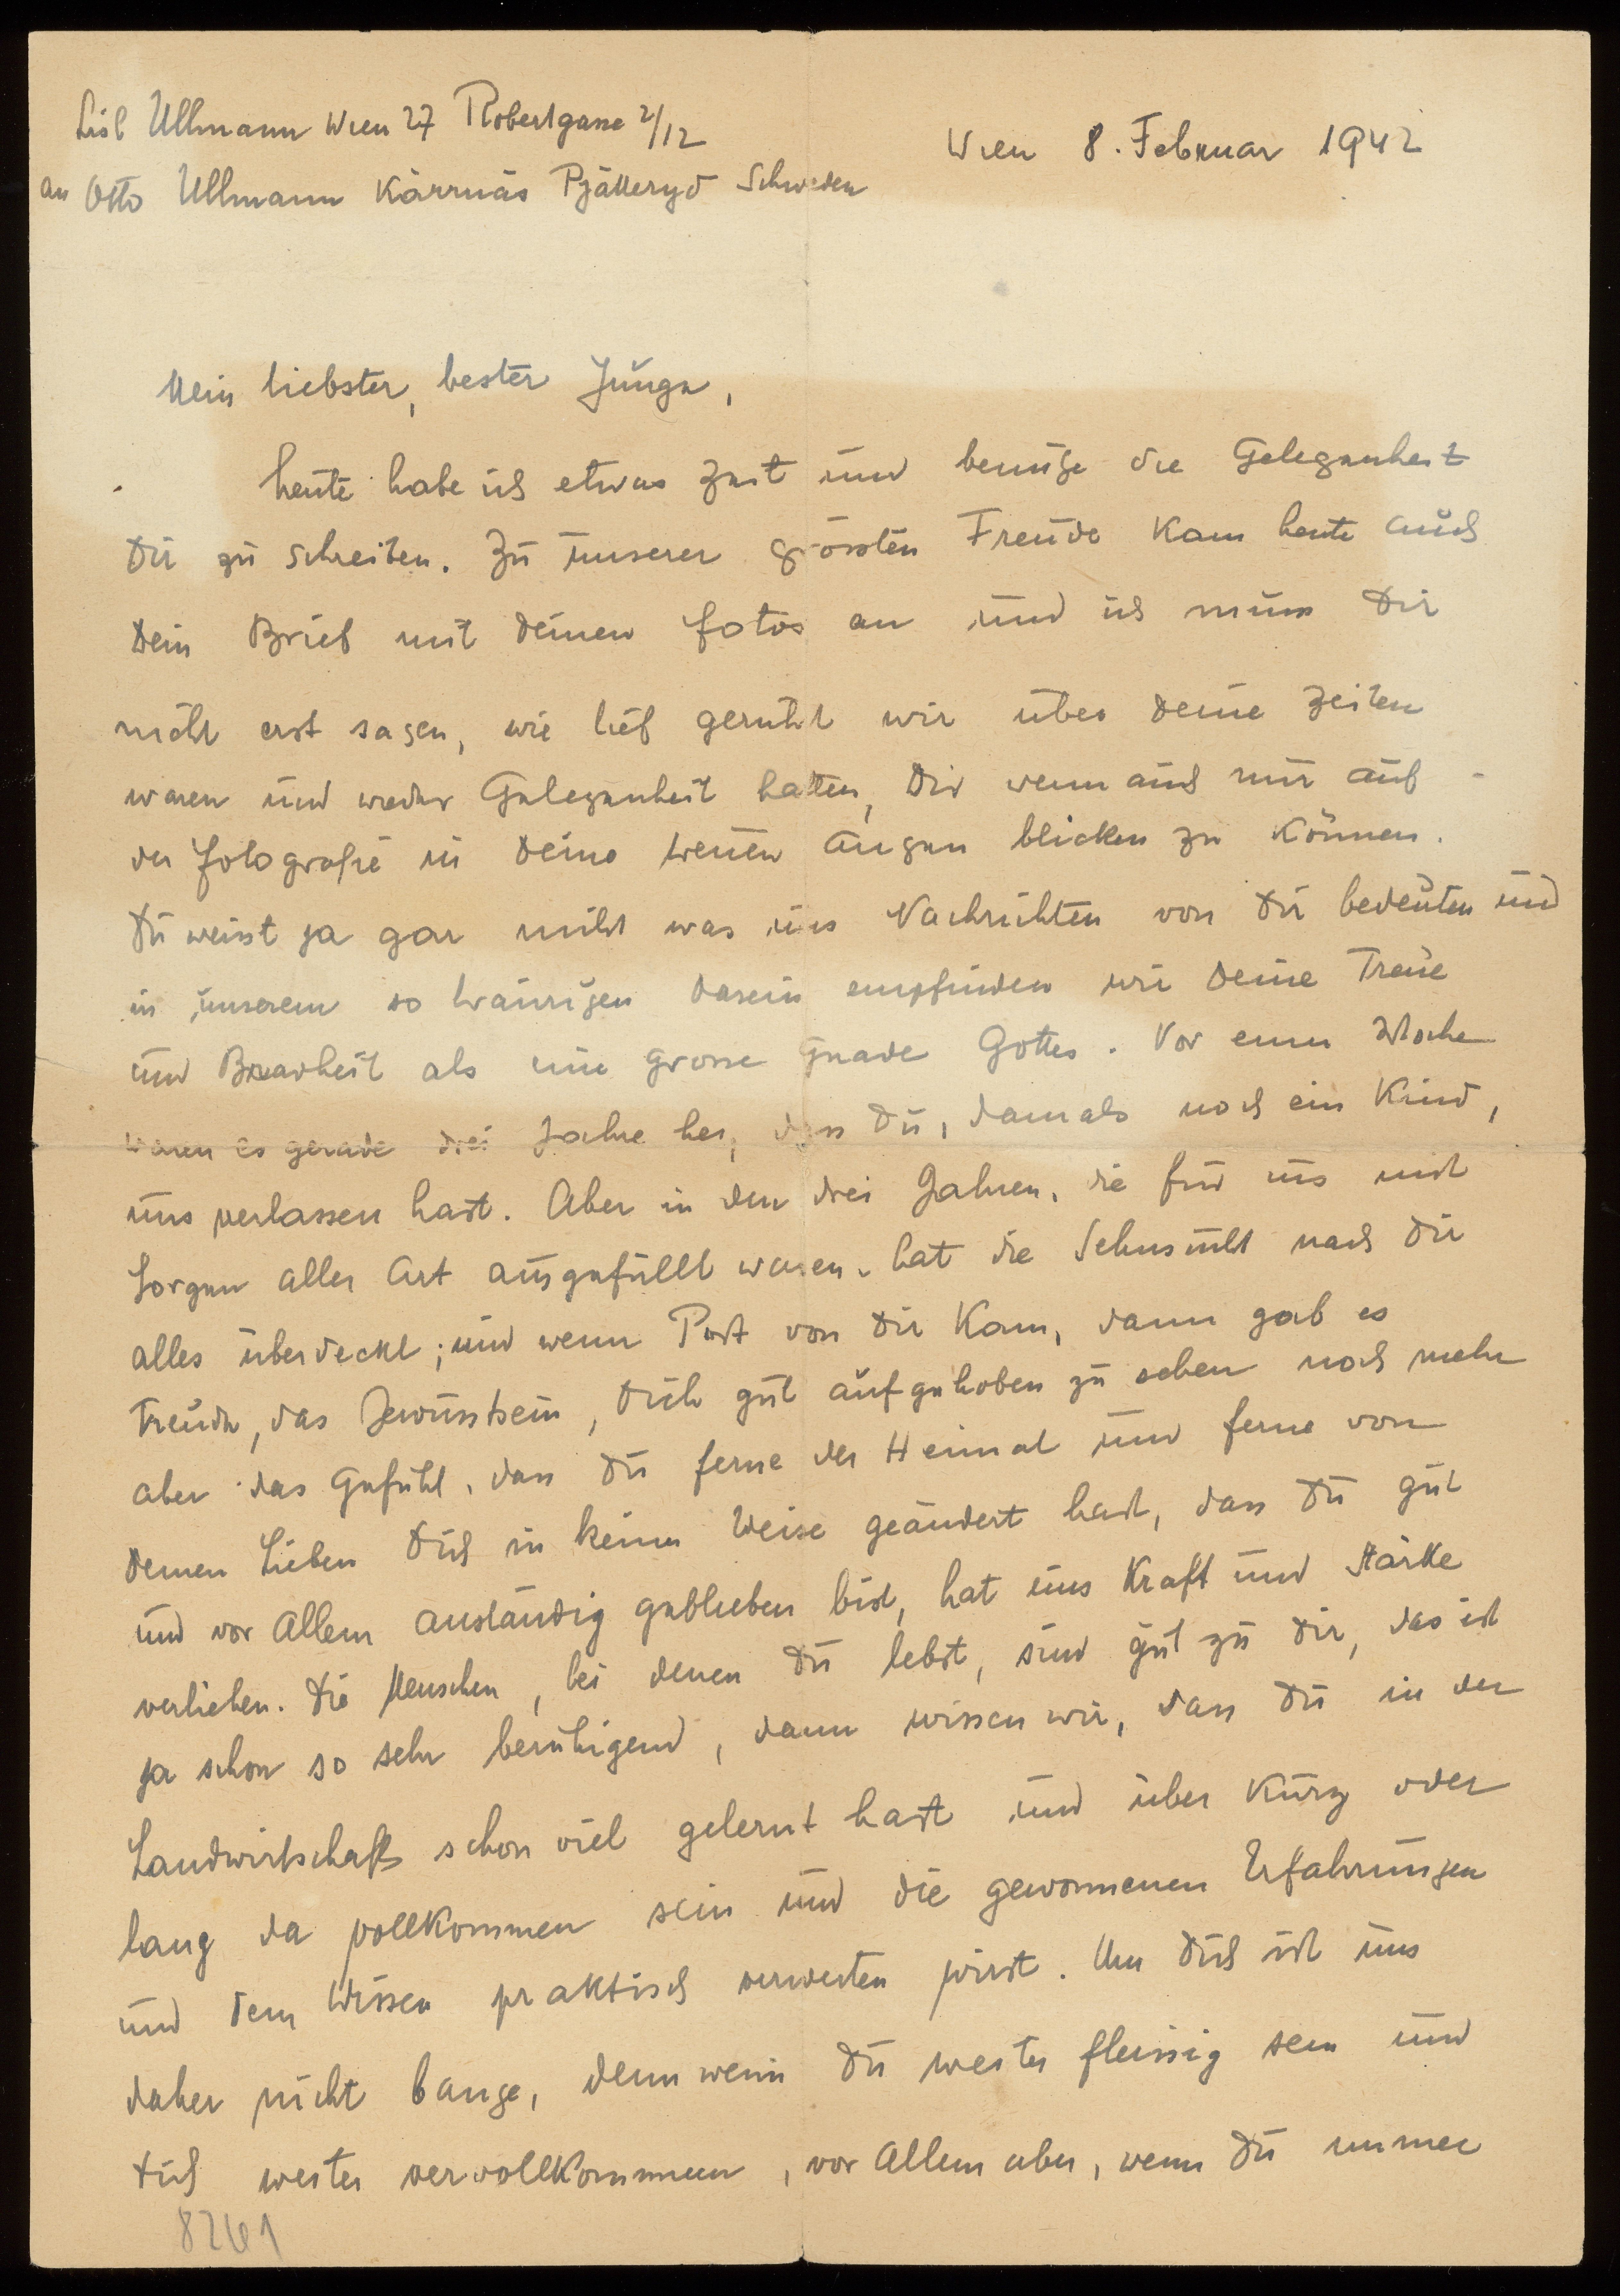 Lisl Ullmann Wien 27 Robertgasse 2/12
Wien 8. Februar 1942
an Otto Ullmann Kärrnäs Pjätteryd Schweden
Mein liebster, bester Junge,
heute habe ich etwas Zeit und benütze die Gelegenheit
Dir zu schreiben. Zu unserer grössten Freude kam heute auch
Dein Brief mit deinen Fotos an und ich muss Dir
nicht erst sagen, wie tief gerührt wir über deine Zeilen
waren und wieder Gelegenheit hatten, Dir wenn auch nur auf
der Fotografie in Deine treuen Augen blicken zu können.
Du weisst ja gar nicht was uns Nachrichten von Dir bedeuten und
in unserem so traurigen Dasein empfinden wir Deine Treue
und Bravheit als eine grosse Gnade Gottes. Vor einer Woche
waren es gerade drei Jahre her, dass Du, damals noch ein Kind,
uns verlassen hast. Aber in den drei Jahren, die für uns mit
Sorgen aller Art ausgefüllt waren, hat die Sehnsucht nach Dir
alles überdeckt; und wenn Post von Dir kam, dann gab es
Freude, das Bewusstsein, Dich gut aufgehoben zu sehen noch mehr
aber das Gefühl, dass Du ferne der Heimat und ferne von
Deinen Lieben Dich in keiner Weise geändert hast, dass Du gut
und vor Allem anständig geblieben bist, hat uns Kraft und Stärke
verliehen. Die Menschen, bei denen Du lebst, sind gut zu Dir, das ist
ja schon so sehr beruhigend, dann wissen wir, dass Du in der
Landwirtschaft schon viel gelernt hast und über kurz oder
lang da vollkommen sein und die gewonnenen Erfahrungen
und Dein Wissen praktisch verwerten wirst. Um Dich ist uns
daher nicht bange, denn wenn Du weiter fleissig sein und
Dich weiter vervollkommnen, vor Allem aber, wenn Du immer
8261